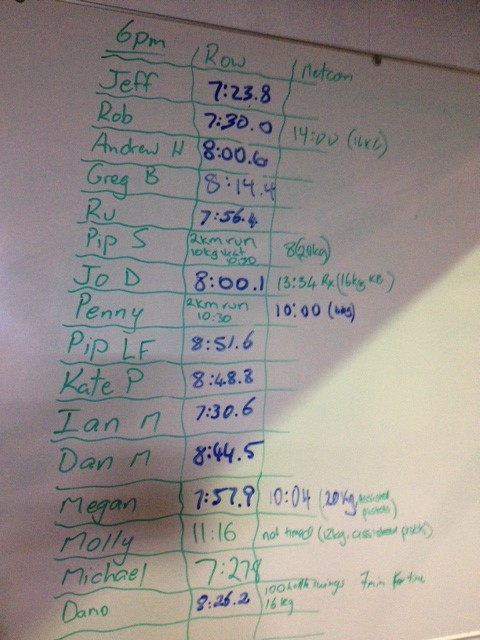 6pm Row metcon
Jeff 7:23.8
Rob 7:30.0 14:00 (16KG)
Andrew H 8:00.6
Greg B 8:14.4
Ru 7:56.4
Pip S 2km run 8(20kg)
10kg vest
10:20
Jo D 8:00.1 13:54 Rx (16kg KB)
Penny 2km run 10:00
10:30
Pip LF 8:51.6
Kate P 8:48.8
Ian M 7:30.6
Dan M 8:44.5
Megan 7:57.9 10:04 (20kg,
Molly 11:16 not timed (12kg,
Michael 7:278
Dano 8:26.2 100 swings 7min
16kg